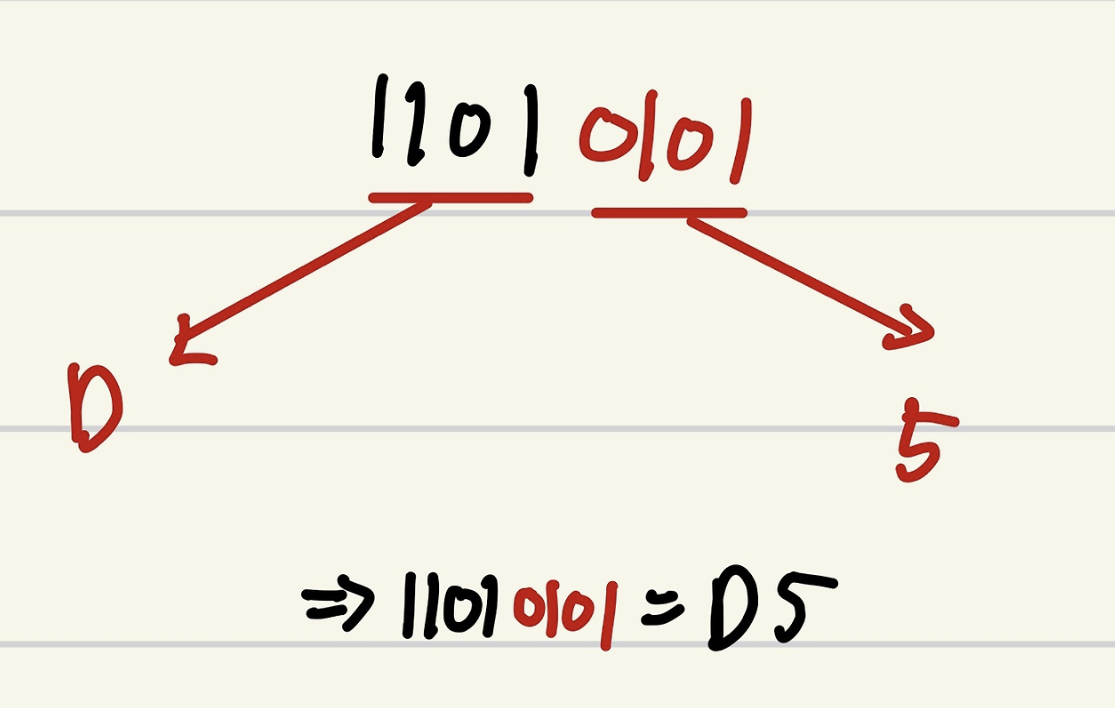 1101 0101
D
5
⇒ 11010101 = D5